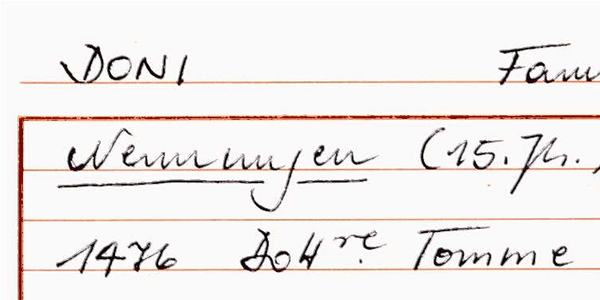 DONI Fam
Nennungen (15. Jh.)
1476 Dott^re. Tomme